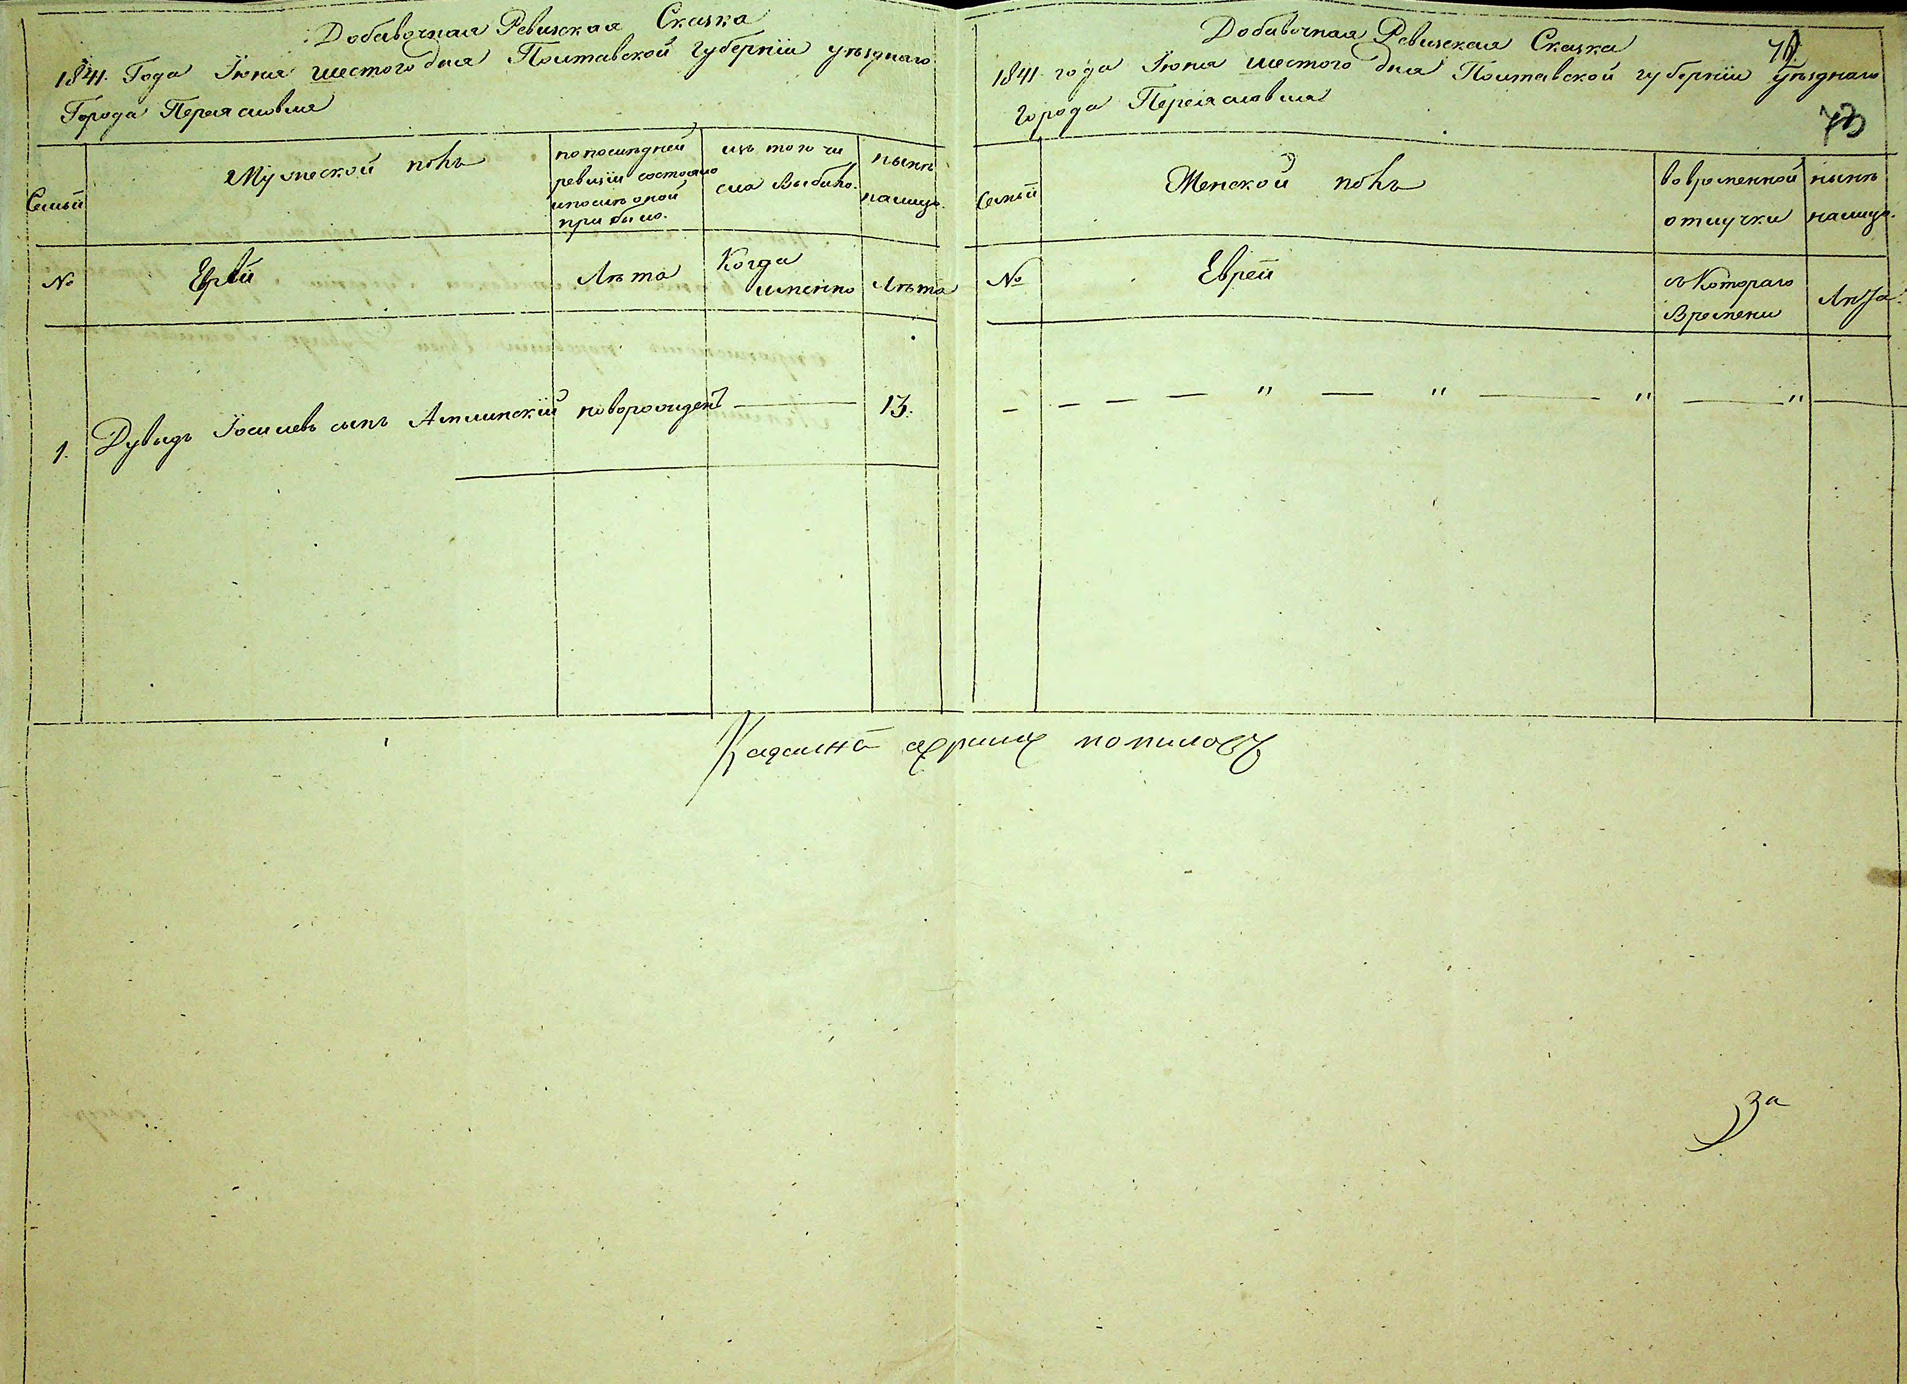 Добавочная Ревизская Сказка
1841. Года Іюня шестого дня Полтавской губерніи уѣзднаго
Города Переяславля
Семьи
Мужеской полъ
по последней
ревизіи состояло
и после оной
прибыло.
изъ того чи
сла выбыло.
нынѣ
налицо.
№
Еврей
Лѣта
Когда
именно
Лѣта
1.
Дувидъ Іосиевъ сынъ новорожденъ
13.
Добавочная Ревизская Сказка
1841 года Іюня шестого дня Полтавской губерніи Уѣзднаго
города Переяславля
73
Семьи
Женской полъ
во временной
отлучки
нынѣ
налицо.
№
Еврей
съ Котораго
Времени
Лѣта
За